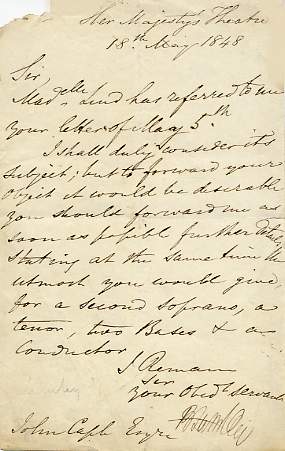 Her Majesty's Theatre
18.th May 1848
Sir,
Madelle Lind has referred to me
your letter of May 5th
I shall duly consider its
subject; but to forward your
object it would be desirable
you should forward me as
soon as possible further details,
stating at the same time the
utmost you would give,
for a second soprano, a
tenor, two Bases & a
Conductor
I Remain
Sir
Your Obedt Servant
John Esqre